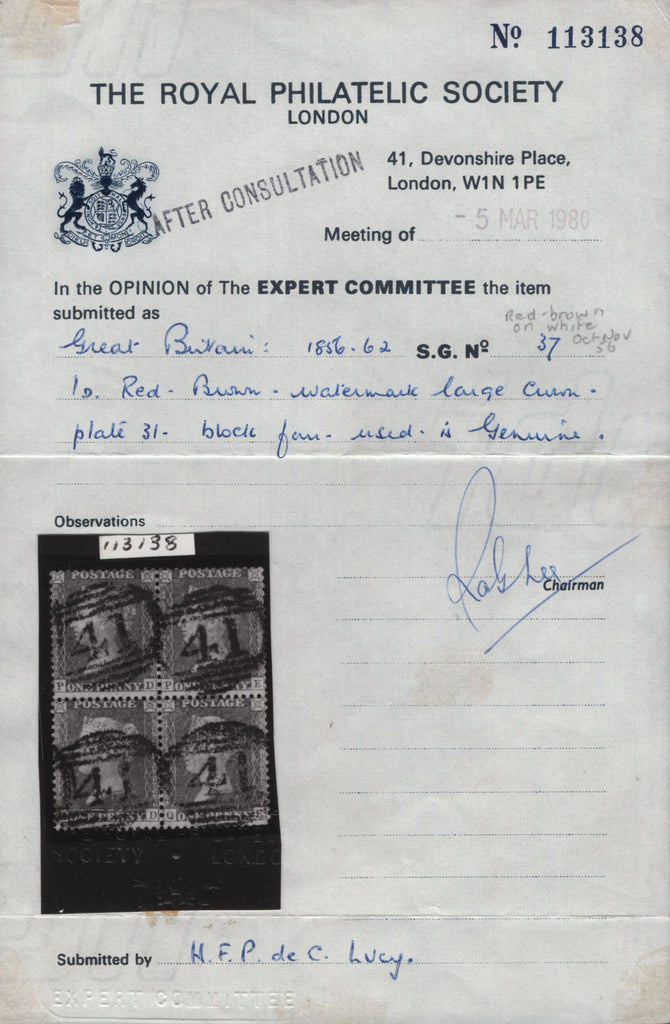 Nº 113138
THE ROYAL PHILATELIC SOCIETY
LONDON
AFTER CONSULTATION
41, Devonshire Place,
London, W1N 1PE
Meeting of - 5 MAR 1980
In the OPINION of The EXPERT COMMITTEE the item
submitted as
Red-brown
on white
Oct-Nov
56
Great Britain: 1856-62 S.G. Nº 37
1D. Red-Brown - watermark large Crown -
plate 31- block four - used - is Genuine.
Observations
113138
Chairman
POSTAGE POSTAGE
41 41
P ONE PENNY D P ONE PENNY E
POSTAGE POSTAGE
41 41
ONE PENNY D Q ONE PENNY E
SOCIETY LONDO
Submitted by H.F.P. de C. Lucy.
EXPERT COMMITTEE